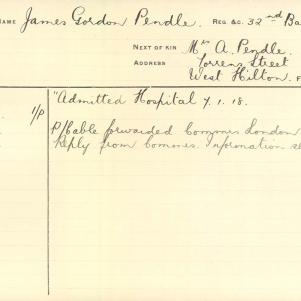 NAME James Gordon Pendle. REG &C. 32nd Ba
NEXT OF KIN Mrs A. Pendle.
ADDRESS Torrens Street
West Hilton.
"Admitted Hospital 7.1.18.
1/P
P/Cable forwarded Commes London
Reply from Commes. Information